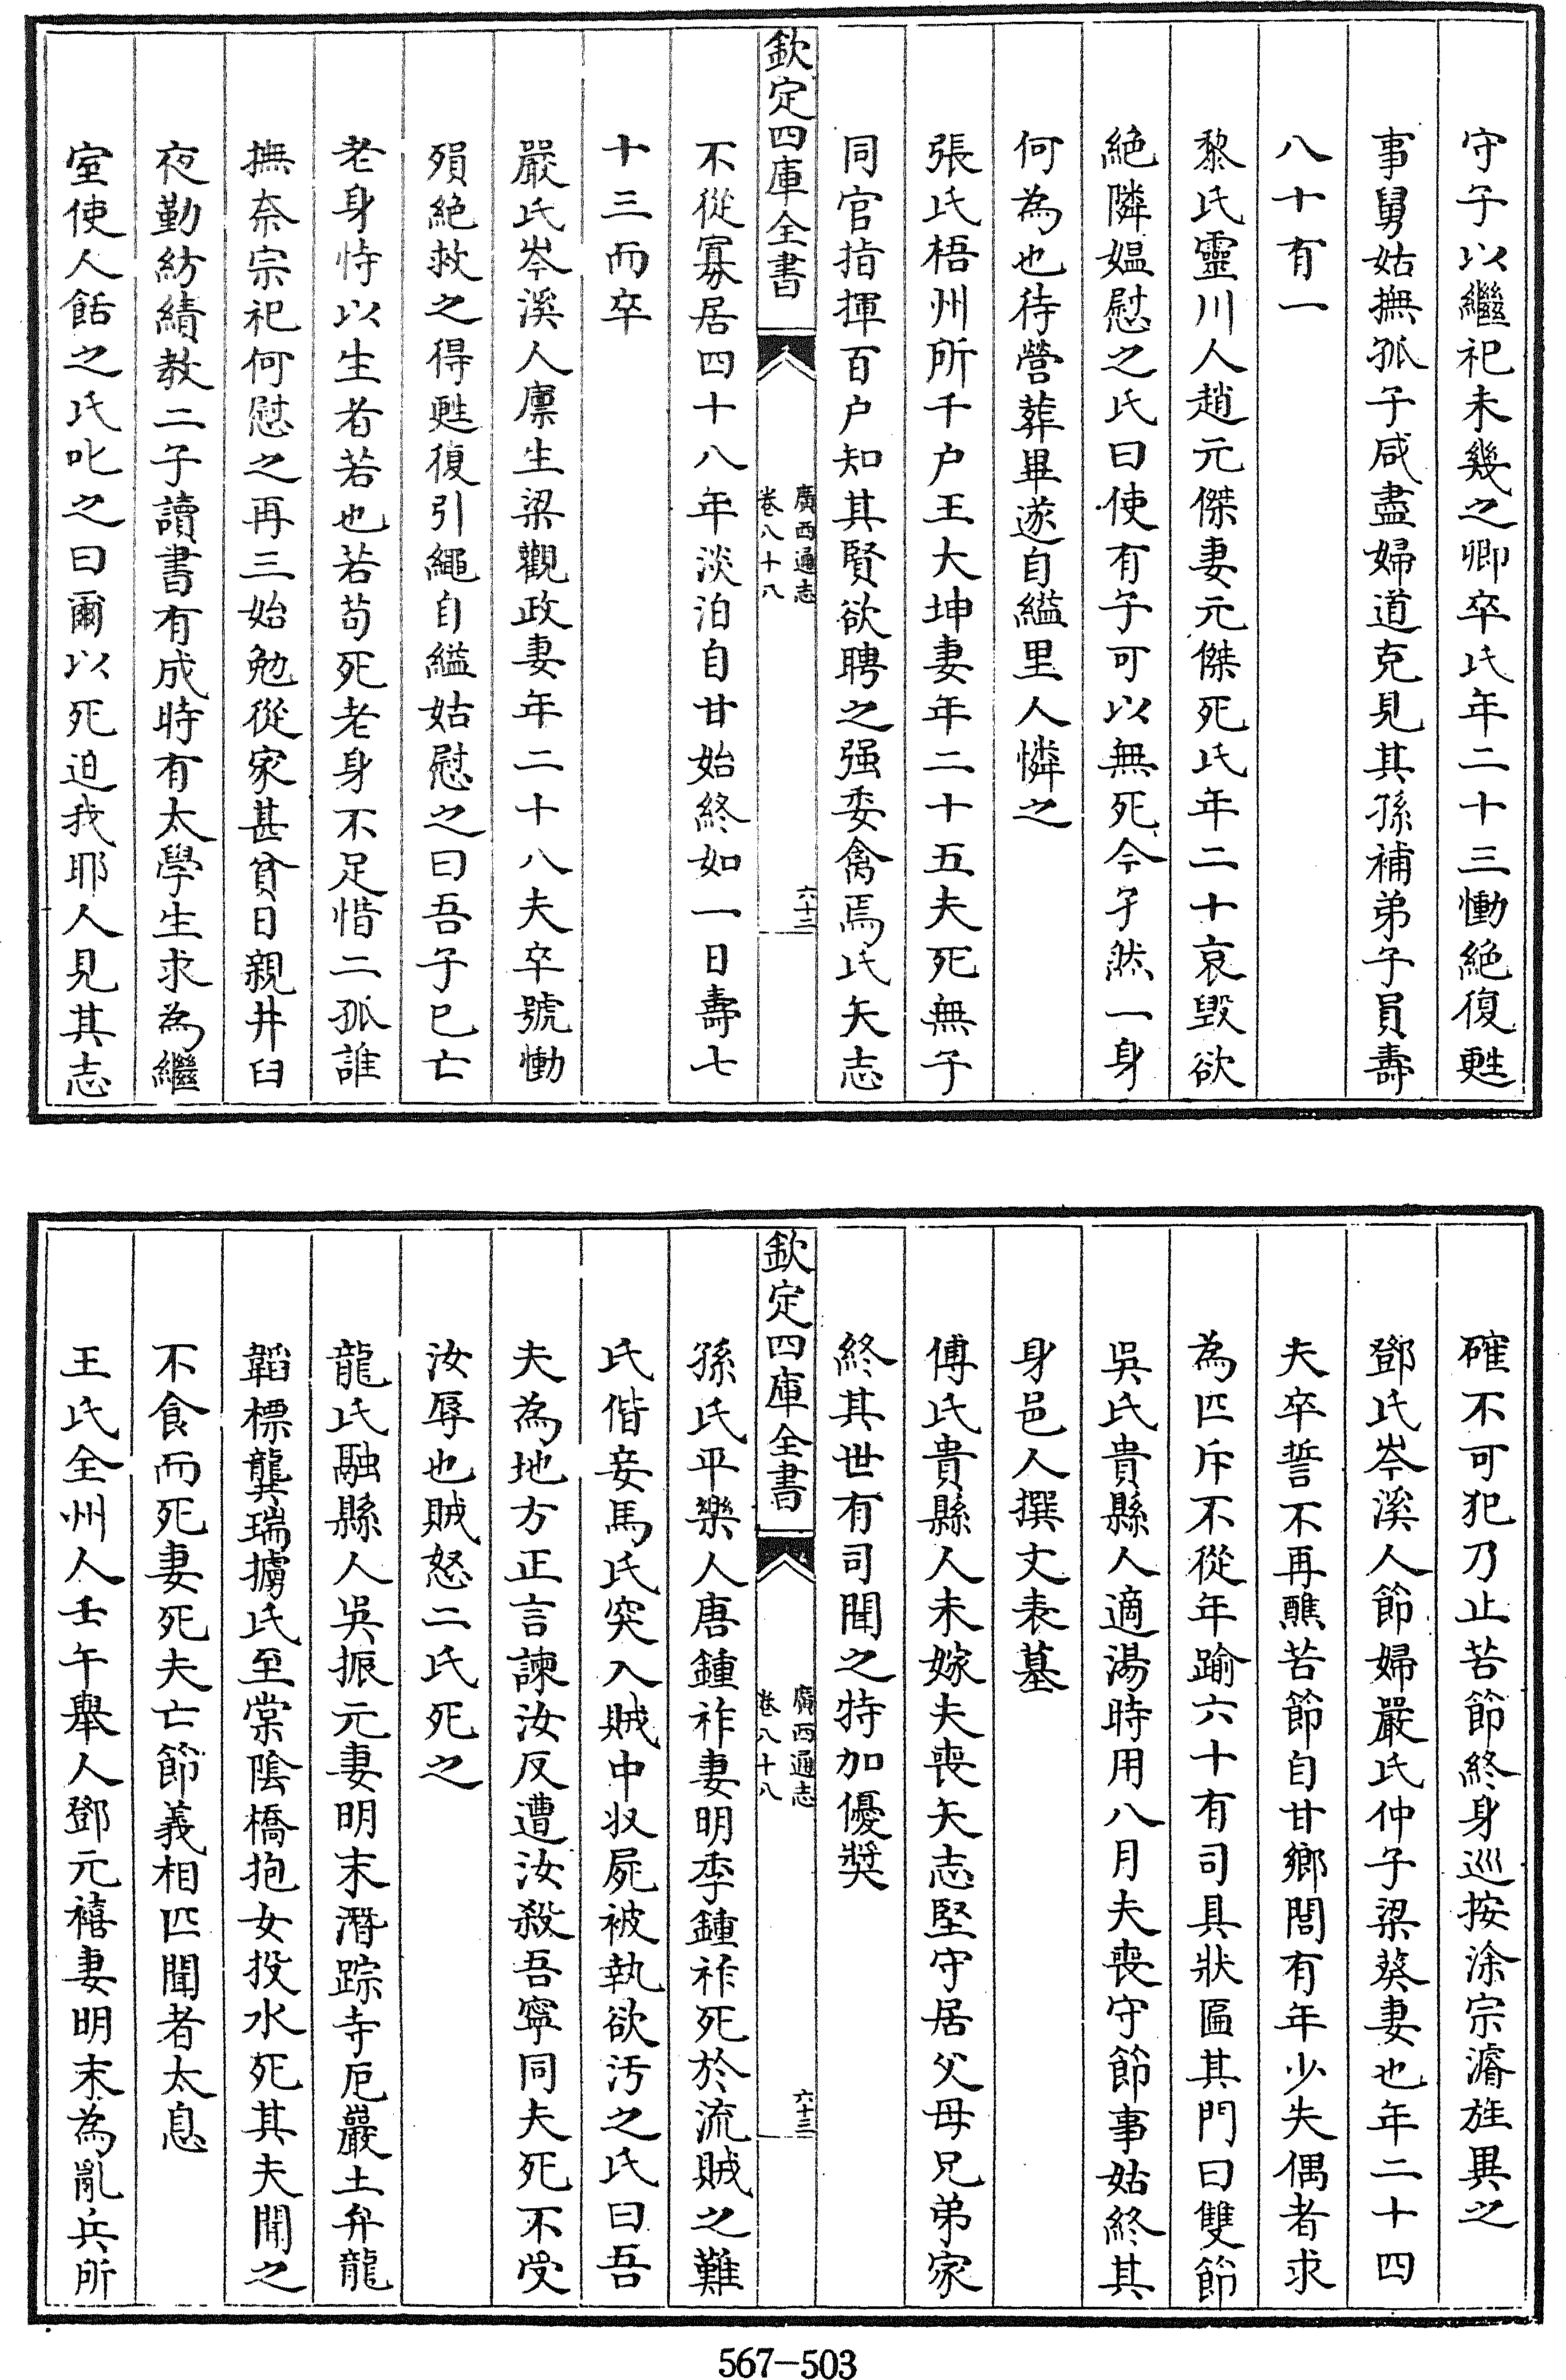 守子以繼祀未幾之卿卒氏年二十三慟絶復甦
事舅姑撫孤子咸盡婦道克見其孫補弟子員壽
八十有一
黎氏靈川人趙元傑妻元傑死氏年二十哀毀欲
絶隣媪慰之氏曰使有子可以無死今孑然一身
何為也待營葬畢遂自縊里人憐之
張氏梧州所千户王大坤妻年二十五夫死無子
同官指揮百户知其賢欲聘之强委禽焉氏矢志
欽定四庫全書
廣西通志
卷八十八
六十三
不從寡居四十八年淡泊自甘始終如一日壽七
十三而卒
嚴氏岑溪人廪生梁觀政妻年二十八夫卒號慟
殞絶救之得甦復引繩自縊姑慰之曰吾子已亡
老身恃以生者若也若苟死老身不足惜二孤誰
撫奈宗祀何慰之再三始勉從家甚貧日親井臼
夜勤紡績教二子讀書有成時有太學生求為繼
室使人餂之氏叱之曰爾以死迫我耶人見其志
確不可犯乃止苦節終身巡按涂宗濬旌異之
鄧氏岑溪人節婦嚴氏仲子梁葵妻也年二十四
夫卒誓不再醮苦節自甘鄉閭有年少失偶者求
為匹斥不從年踰六十有司具狀匾其門曰雙節
吳氏貴縣人適湯時用八月夫喪守節事姑終其
身邑人撰文表墓
傅氏貴縣人未嫁夫喪矢志堅守居父母兄弟家
終其世有司聞之特加優奬
欽定四庫全書
廣西通志
卷八十八
六十三
孫氏平樂人唐鍾祚妻明季鍾祚死於流賊之難
氏偕妾馬氏突入賊中收屍被執欲汚之氏曰吾
夫為地方正言諫汝反遭汝殺吾寧同夫死不受
汝辱也賊怒二氏死之
龍氏融縣人吳振元妻明末潛踪寺厄巖土弁龍
韜標龔瑞擄氏至棠陰橋抱女投水死其夫聞之
不食而死妻死夫亡節義相匹聞者太息
王氏全州人壬午舉人鄧元禧妻明末為亂兵所
567-503